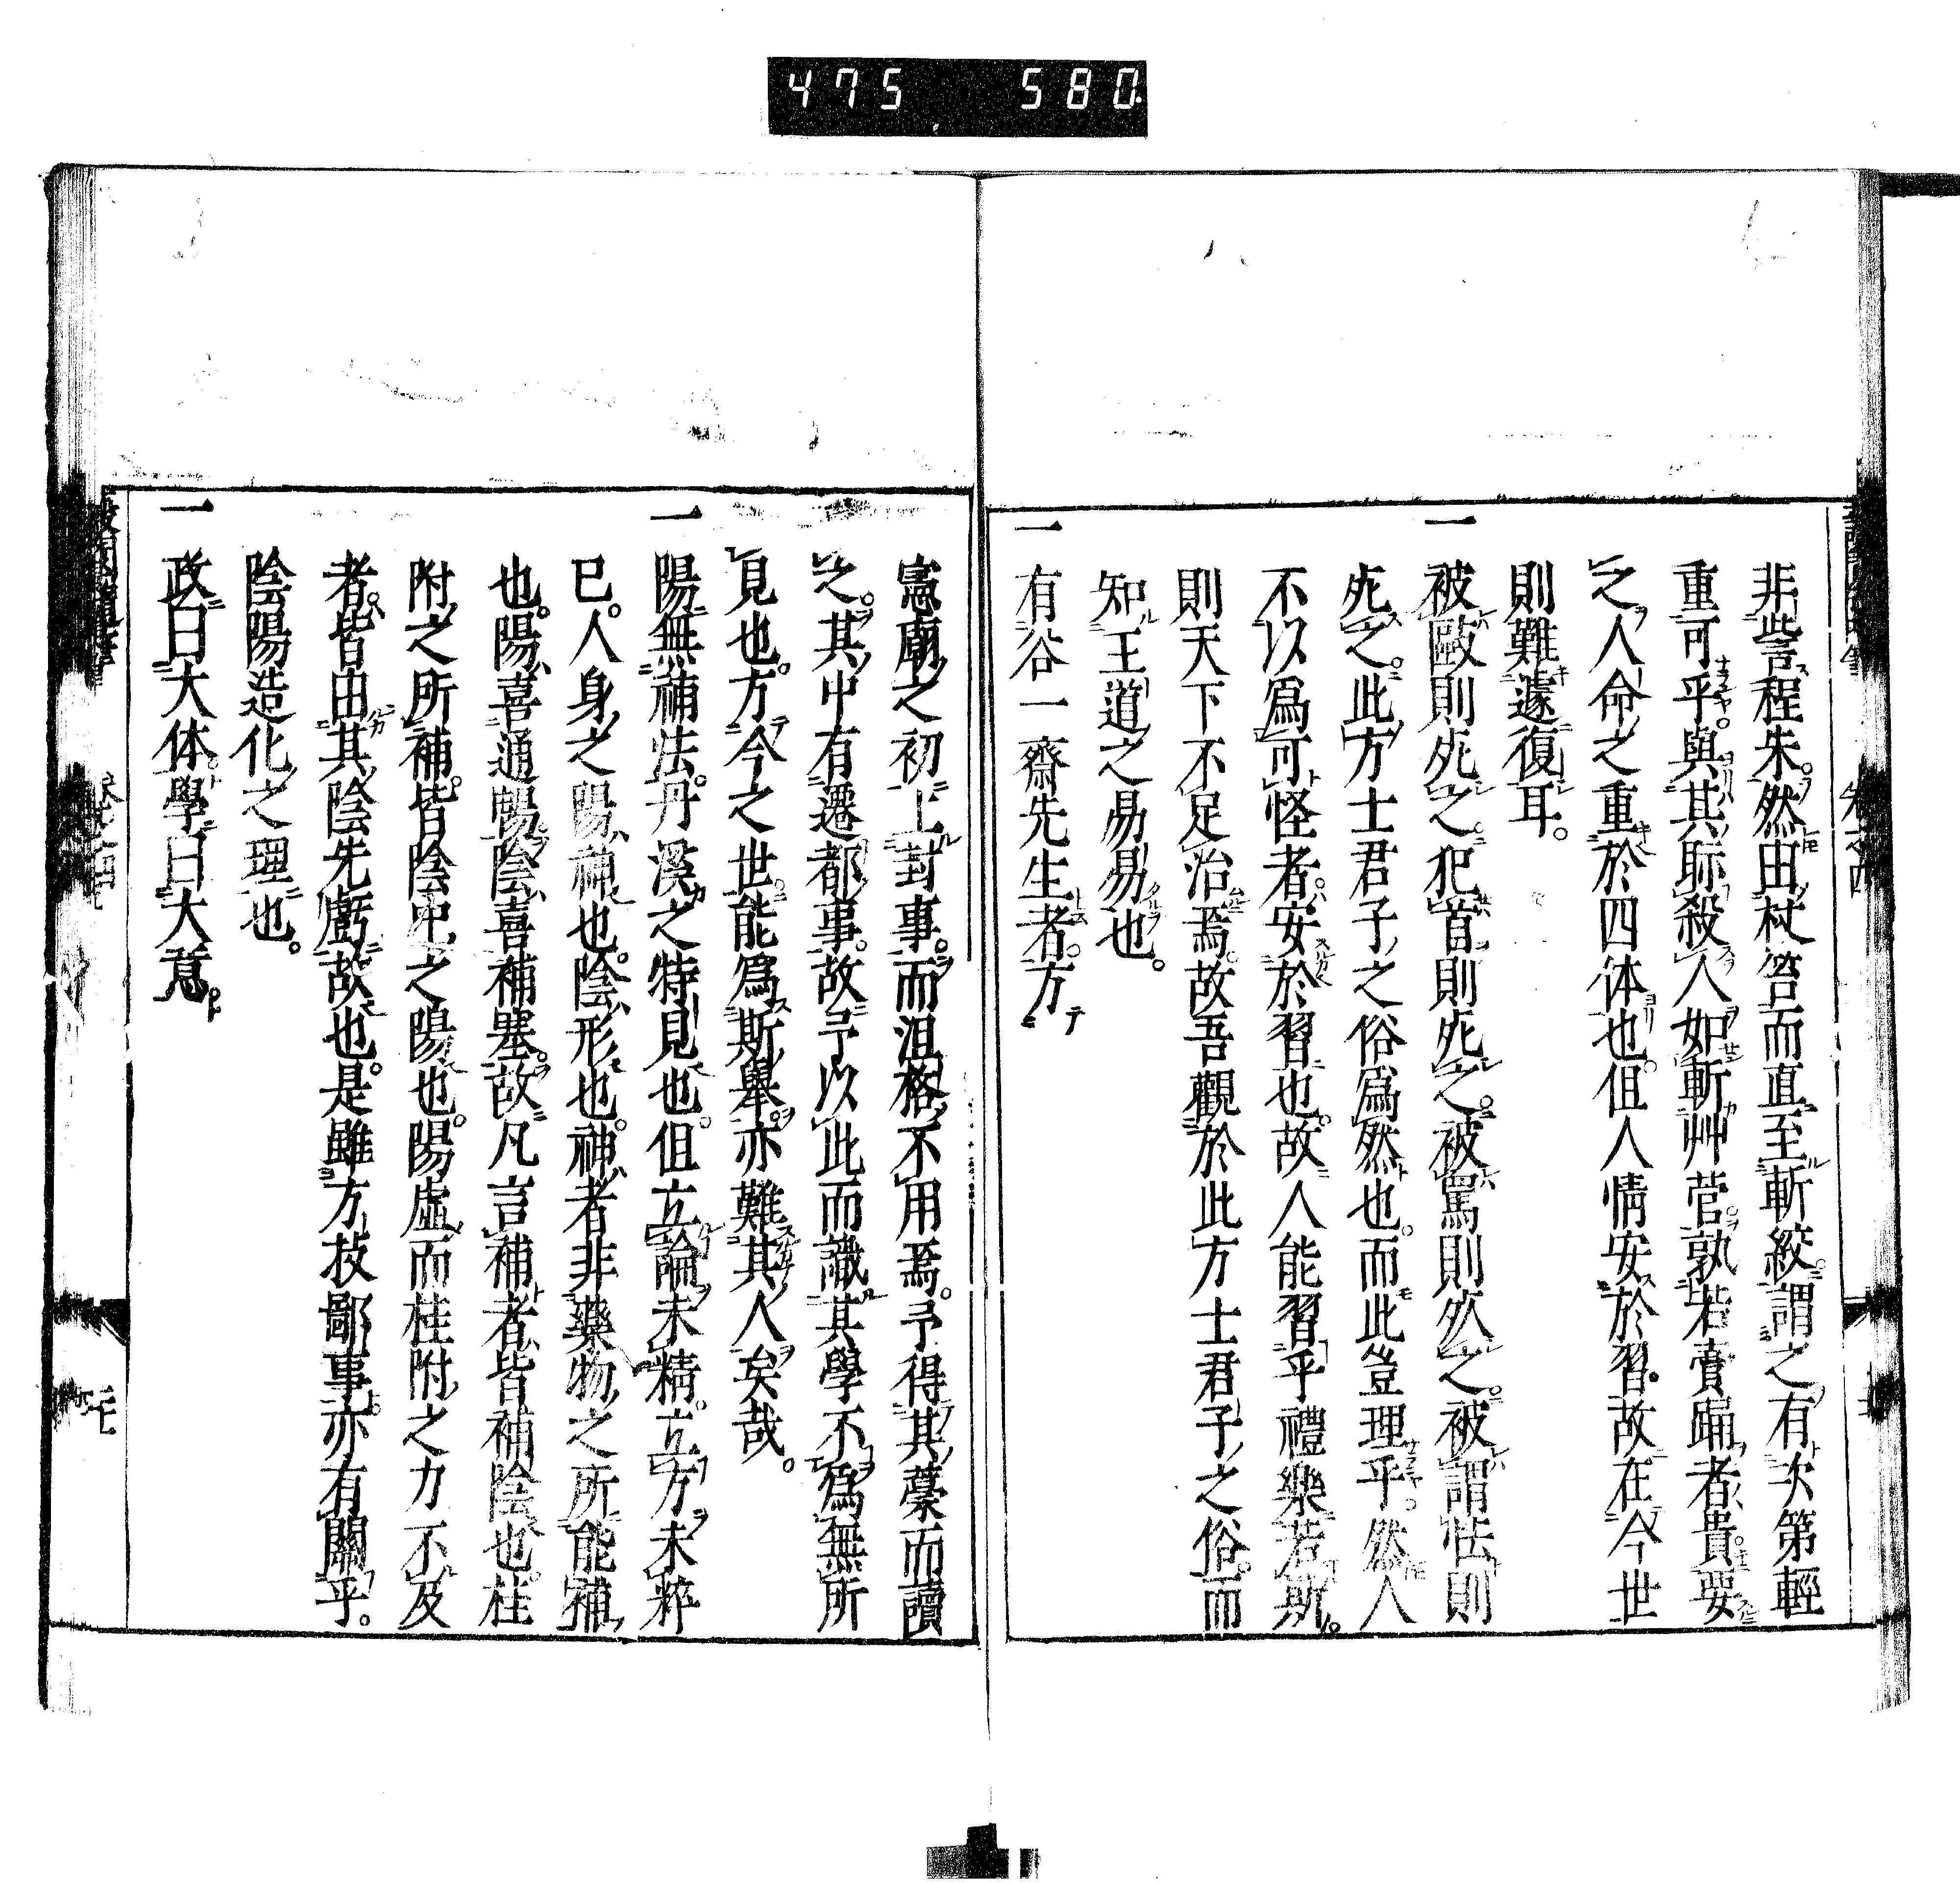 475 580
非訾程朱然由杖笞而直至斬絞謂之有次第輕
重可乎與其斮殺人如斬艸菅孰若賣踊者貴要
之人命之重於四体也但人情安於習故在今世
則難遽復耳
一 被毆則死之犯首則死之被罵則然之被謂怯則
死之此方士君子之俗爲然也而此豈理乎然人
不以爲可怪者安於習也故人能習乎禮樂若斯
則天下不足治焉故吾觀於此方士君子之俗而
知王道之易易也
一 有谷一齋先生者方
憲廟之初上封事而沮格不用焉予得其藁而讀
之其中有遷都事故予以此而識其學不爲無所
見也方今之世能爲斯舉亦難其人矣哉
一 陽無補法丹溪之特見也但立論未精立方未粹
已人身之陽神也陰形也神者非藥物之所能補
也陽喜通暢陰喜補塞故凡言補者皆補陰也桂
附之所補皆陰中之陽也陽虛而桂附之力不及
者皆由其陰先虧故也是雖方技鄙事亦有關乎
陰陽造化之理也
一 政曰大体學曰大意